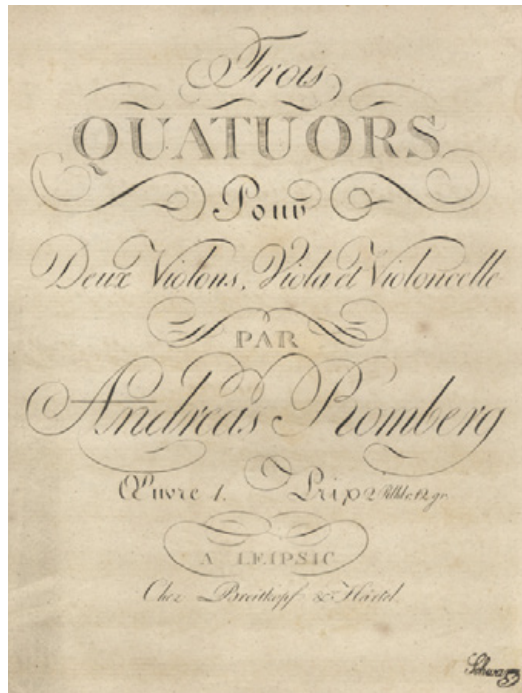 Trois
QUATUORS
Pour
Deux Violons, Viola et Violoncelle
PAR
Andreas Romberg
Œuvre 1. Prix 2 Rthlr 12 gr.
A LEIPSIC
Chez Breitkopf & Härtel.